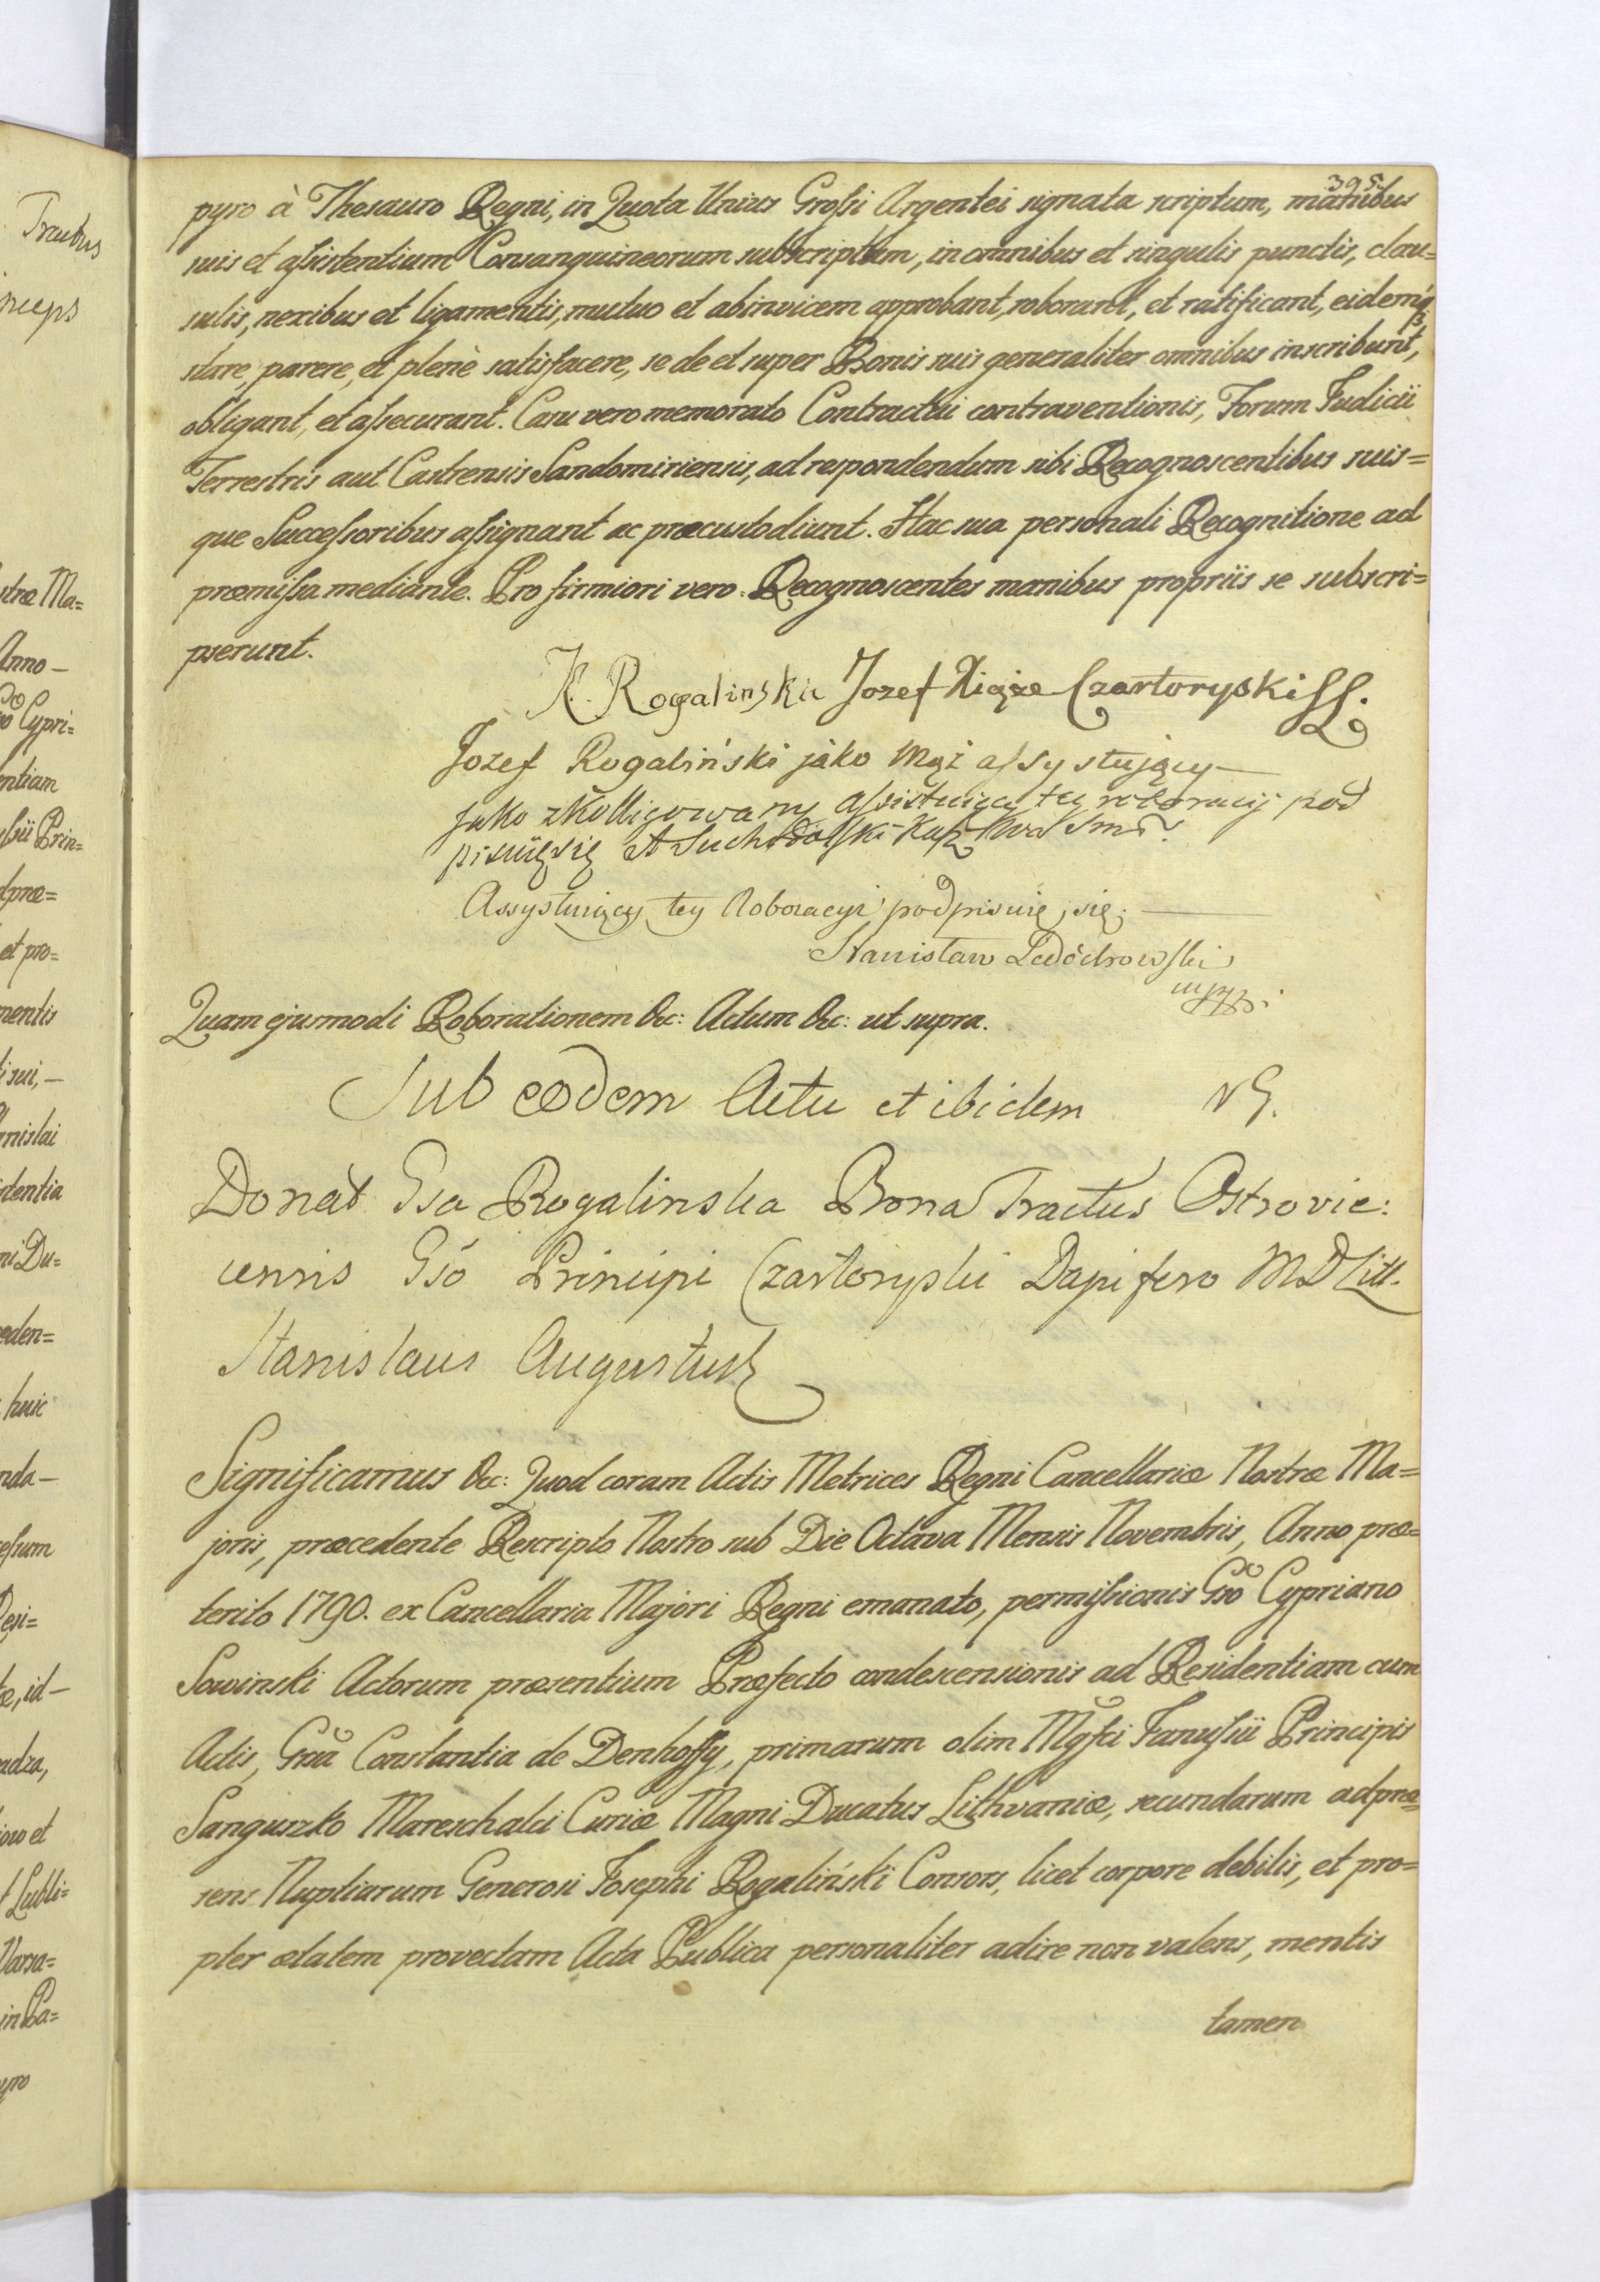 395
pyro à Thesauro Regni, in Quota Unius Grossi Argentei signata scriptum, manibus
suis et assistentium Consanguineorum subscriptum, in omnibus et singulis punctis, clau=
sulis, nexibus et ligamentis, mutuo et abinvicem approbant, roborant, et ratificant, eidemq3
stare, parere, et plenè satisfacere, se de et super Bonis suis generaliter omnibus inscribunt,
obligant, et assecurant. Casu vero memorato Contractui contraventionis, Forum Judicii
Terrestris aut Castrensis Sandomiriensis, ad respondendum sibi Recognoscentibus suis=
que Successoribus assignant ac præcustodiunt. Hac sua personali Recognitione ad
præmissa mediante. Pro firmiori vero Recognoscentes manibus propriis se subscri=
pserunt.
K. Rogalinska Jozef Xiąże Czartoryski SL.
Jozef Rogaliński jáko Mąż assystujący —
jako zKolligowany assistuiący tey roboracij pod
pisuię się A Suchodolski
Assystuiący tey Roboracyi podpisuię się; —
Stanisław Ledóchowski
mppp.
Quam ejusmodi Roborationem &c: Actum &c: ut supra.
Sub eodem Actu et ibidem NG.
Donat Gsa Rogalinska Bona Tractus Ostrovie:
censis Gsó Principi Czartoryski Dapifero MD Litt.
Stanislaus Augustus
Significamus &c: Quod coram Actis Metrices Regni Cancellariæ Nostræ Ma=
joris, præcedente Rescripto Nostro sub Die Octava Mensis Novembris, Anno præ=
terito 1790. ex Cancellaria Majori Regni emanato, permissionis Gso Cypriano
Sowinski Actorum præsentium Præfecto condescensionis ad Residentiam cum
Actis, Gsa Constantia de Denhoffy, primarum olim Mgfci Janussii Principis
Sanguszko Mareschalci Curiæ Magni Ducatus Lithvaniæ, secundarum ad præ=
sens Nuptiarum Generosi Josephi Rogaliński Consors, licet corpore debilis, et pro=
pter ætatem provectam Acta Publica personaliter adire non valens, mentis
tamen